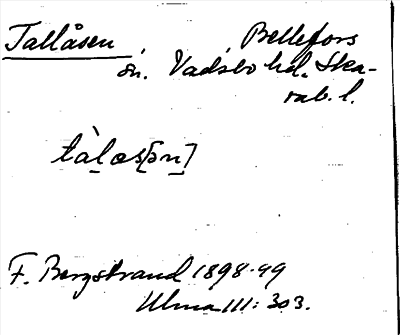 Tallåsen, Bellefors
sn. Vadsbo hd. Ska-
rab. l.
tàlas[ən]
F. Bergstrand 1898-99
Ulma 111: 303.